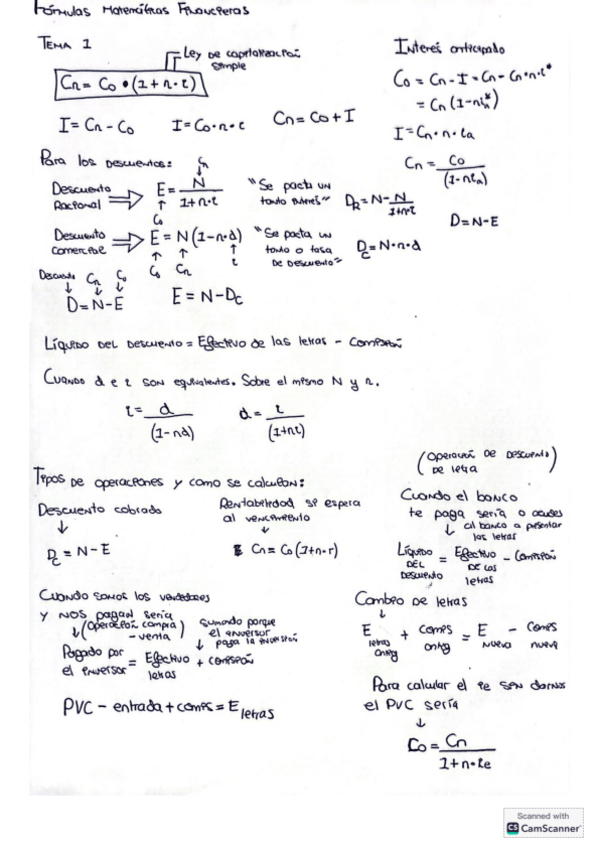 Fórmulas Matemáticas Financieras
TEMA 1
Ley de capitalización
simple
Cn = Co • (1 + n · i)
I = Cn - Co    I = Co · n · i    Cn = Co + I
Interés anticipado
Co = Cn - I = Cn - Cn · n · i*
= Cn (1 - n i*)
I = Cn · n · ia
Cn = Co / (1 - n ia)
Para los descuentos:
Cn
Descuento Racional ⇒ E = N / (1 + n · i)
Co
"Se pacta un
tanto interés"
DR = N - N / (1 + n i)
D = N - E
Descuento comercial ⇒ E = N (1 - n · d)
Co Cn i
"Se pacta un
tanto o tasa
de descuento"
Dc = N · n · d
Descuento Cn Co
D = N - E    E = N - Dc
Líquido del descuento = Efectivo de las letras - comisión
Cuando d e i son equivalentes. Sobre el mismo N y n.
i = d / (1 - nd)    d = i / (1 + ni)
Tipos de operaciones y como se calculan:
Descuento cobrado
Dc = N - E
Rentabilidad si espera
al vencimiento
Cn = Co (1 + n · r)
(Operación de descuento
de letra)
Cuando el banco
te paga sería o acudes
al banco a presentar
las letras
Líquido del descuento = Efectivo de las letras - comisión
Cuando somos los vendedores
y nos pagan sería
(Operación compra
- venta)
Sumando porque
el inversor
paga la inversión
Pagado por el inversor = Efectivo letras + comisión
PVC - entrada + comis = E letras
Cambio de letras
E letras + comis = E nueva - comis nueva
Para calcular el ie sin darnos
el PVC sería
Co = Cn / (1 + n · ie)
Scanned with
CS CamScanner